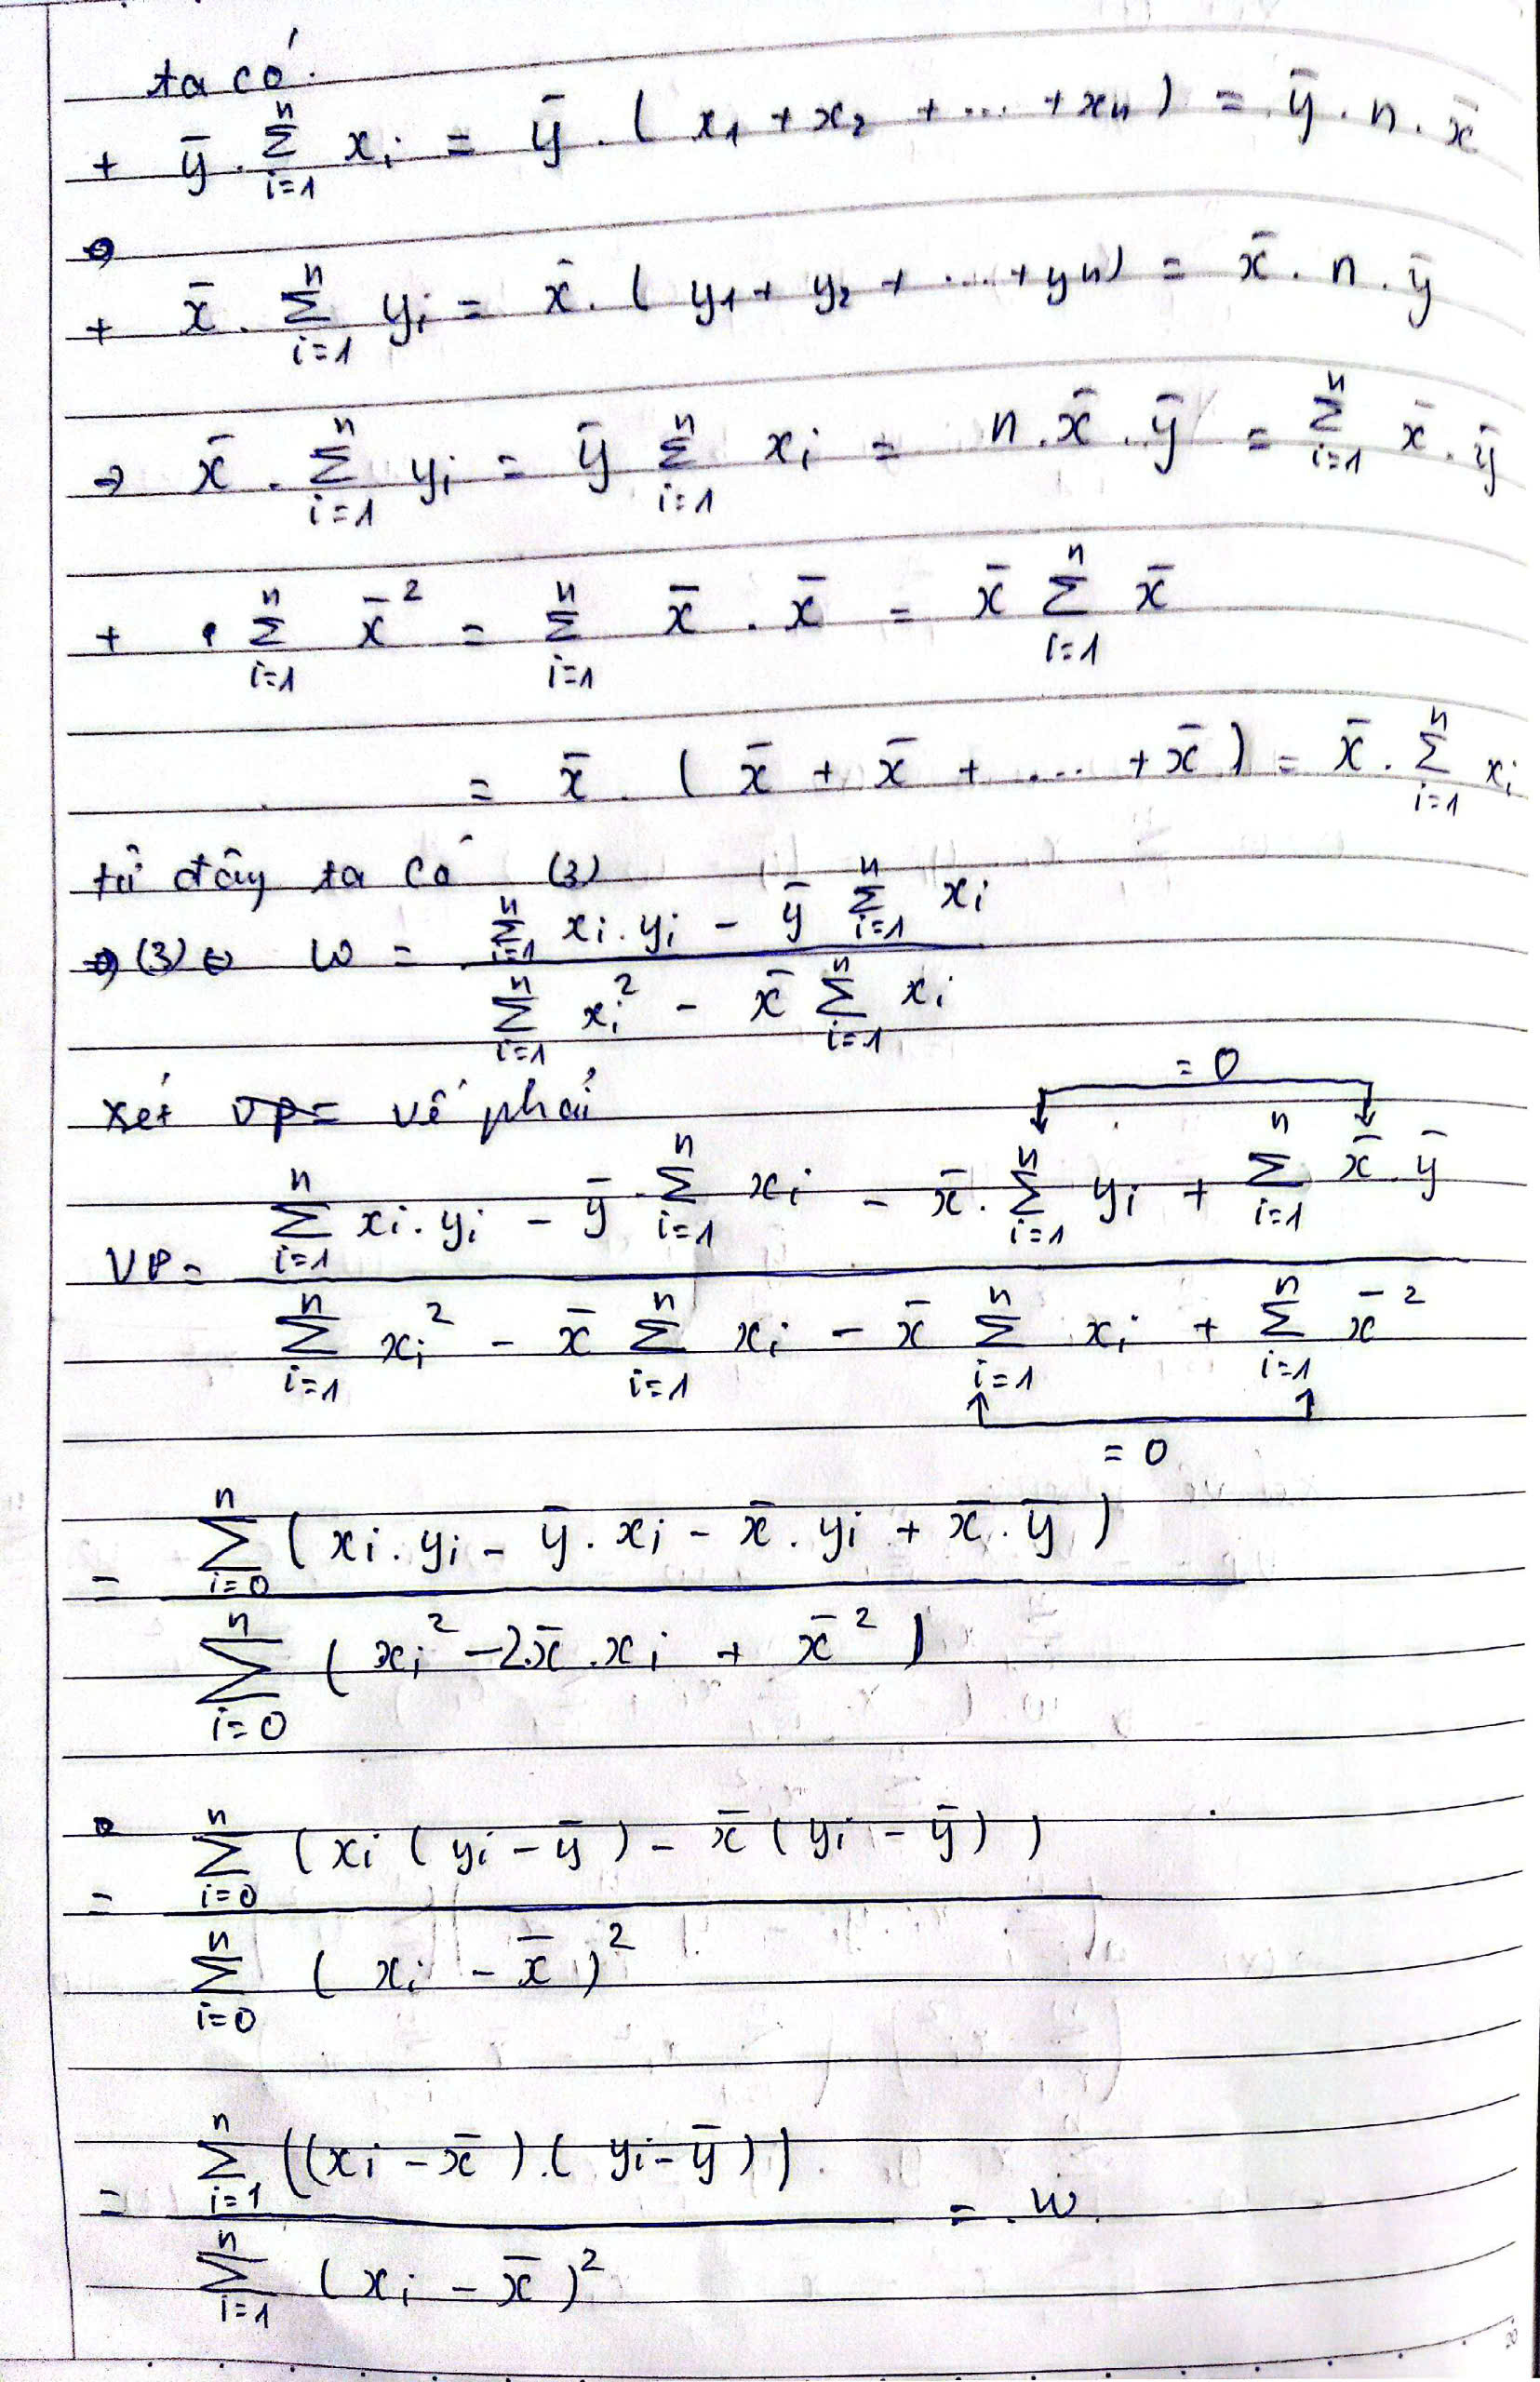 ta có:
+ ȳ . Σ_{i=1}^{n} x_i = ȳ . ( x_1 + x_2 + ... + x_n ) = ȳ . n . x̄
+ x̄ . Σ_{i=1}^{n} y_i = x̄ . ( y_1 + y_2 + ... + y_n ) = x̄ . n . ȳ
→ x̄ . Σ_{i=1}^{n} y_i = ȳ Σ_{i=1}^{n} x_i = n . x̄ . ȳ = Σ_{i=1}^{n} x̄ . ȳ
+ Σ_{i=1}^{n} x̄² = Σ_{i=1}^{n} x̄ . x̄ = x̄ Σ_{i=1}^{n} x̄
= x̄ . ( x̄ + x̄ + .... + x̄ ) = x̄ . Σ_{i=1}^{n} x_i
từ đây ta có (3)
⇒ (3) ⇔ w = (Σ_{i=1}^{n} x_i . y_i - ȳ Σ_{i=1}^{n} x_i) / (Σ_{i=1}^{n} x_i² - x̄ Σ_{i=1}^{n} x_i)
= 0
xét VP = vế phải
VP = (Σ_{i=1}^{n} x_i . y_i - ȳ . Σ_{i=1}^{n} x_i - x̄ . Σ_{i=1}^{n} y_i + Σ_{i=1}^{n} x̄ . ȳ) / (Σ_{i=1}^{n} x_i² - x̄ Σ_{i=1}^{n} x_i - x̄ Σ_{i=1}^{n} x_i + Σ_{i=1}^{n} x̄²)
= 0
= (Σ_{i=0}^{n} ( x_i . y_i - ȳ . x_i - x̄ . y_i + x̄ . ȳ )) / (Σ_{i=0}^{n} ( x_i² - 2.x̄ . x_i + x̄² ))
= (Σ_{i=0}^{n} ( x_i ( y_i - ȳ ) - x̄ ( y_i - ȳ ) )) / (Σ_{i=0}^{n} ( x_i - x̄ )²)
= (Σ_{i=1}^{n} (( x_i - x̄ ) . ( y_i - ȳ ))) / (Σ_{i=1}^{n} ( x_i - x̄ )²) = . w .